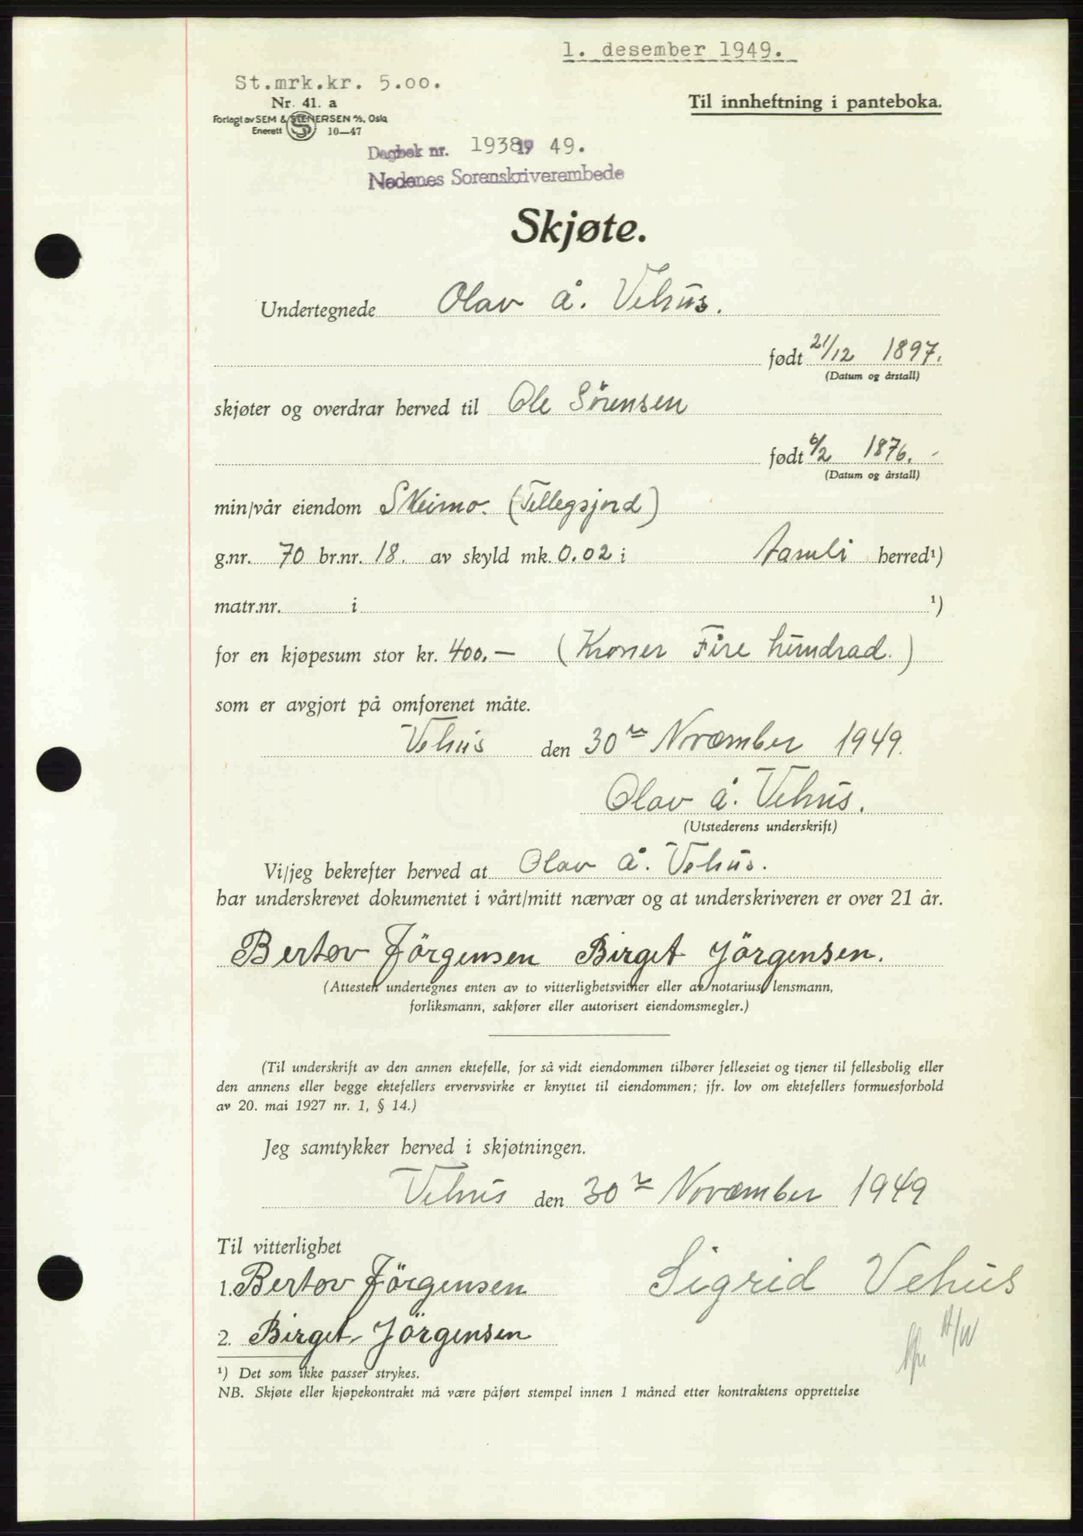 1. desember 1949.
St.mrk.kr. 5.00.
Nr. 41. a
Til innheftning i panteboka.
Forlagt av SEM & STENERSEN A/S, Oslo
Enerett 10—47
Dagbok nr. 1938 19 49.
Nedenes Sorenskriverembede
Skjøte.
Undertegnede Olav Å. Vehus.
født 21/12 1897.
(Datum og årstall)
skjøter og overdrar herved til Ole Sörensen
født 6/2 1876.
(Datum og årstall)
min/vår eiendom Skeimo. (Tellegsjord)
g.nr. 70 br.nr. 18. av skyld mk. 0.02 i Aamli herred¹)
matr.nr. i ¹)
for en kjøpesum stor kr. 400.— (Kroner Fire hundrad.)
som er avgjort på omforenet måte.
Vehus den 30 November 1949.
Olav Å. Vehus.
(Utstederens underskrift)
Vi/jeg bekrefter herved at Olav Å. Vehus.
har underskrevet dokumentet i vårt/mitt nærvær og at underskriveren er over 21 år.
Bertov Jörgensen Birget Jörgensen.
(Attesten undertegnes enten av to vitterlighetsvitner eller av notarius, lensmann,
forliksmann, sakfører eller autorisert eiendomsmegler.)
(Til underskrift av den annen ektefelle, for så vidt eiendommen tilhører felleseiet og tjener til fellesbolig eller
den annens eller begge ektefellers ervervsvirke er knyttet til eiendommen; jfr. lov om ektefellers formuesforhold
av 20. mai 1927 nr. 1, § 14.)
Jeg samtykker herved i skjøtningen.
Vehus den 30 November 1949
Til vitterlighet
1. Bertov Jörgensen Sigrid Vehus
2. Birget Jörgensen
¹) Det som ikke passer strykes.
NB. Skjøte eller kjøpekontrakt må være påført stempel innen 1 måned etter kontraktens opprettelse